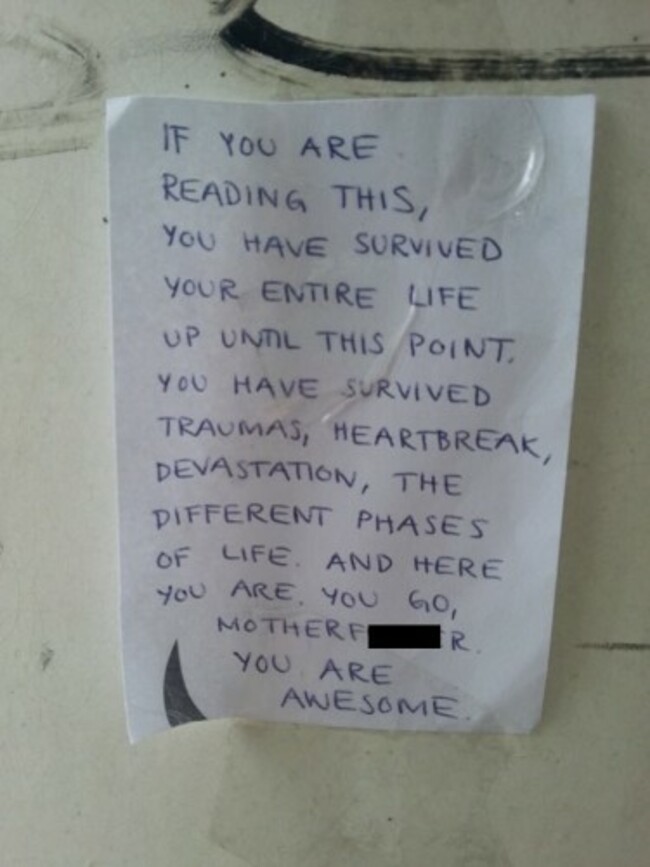 IF YOU ARE
READING THIS,
YOU HAVE SURVIVED
YOUR ENTIRE LIFE
UP UNTIL THIS POINT.
YOU HAVE SURVIVED
TRAUMAS, HEARTBREAK,
DEVASTATION, THE
DIFFERENT PHASES
OF LIFE. AND HERE
YOU ARE. YOU GO,
MOTHERF R.
YOU ARE
AWESOME.